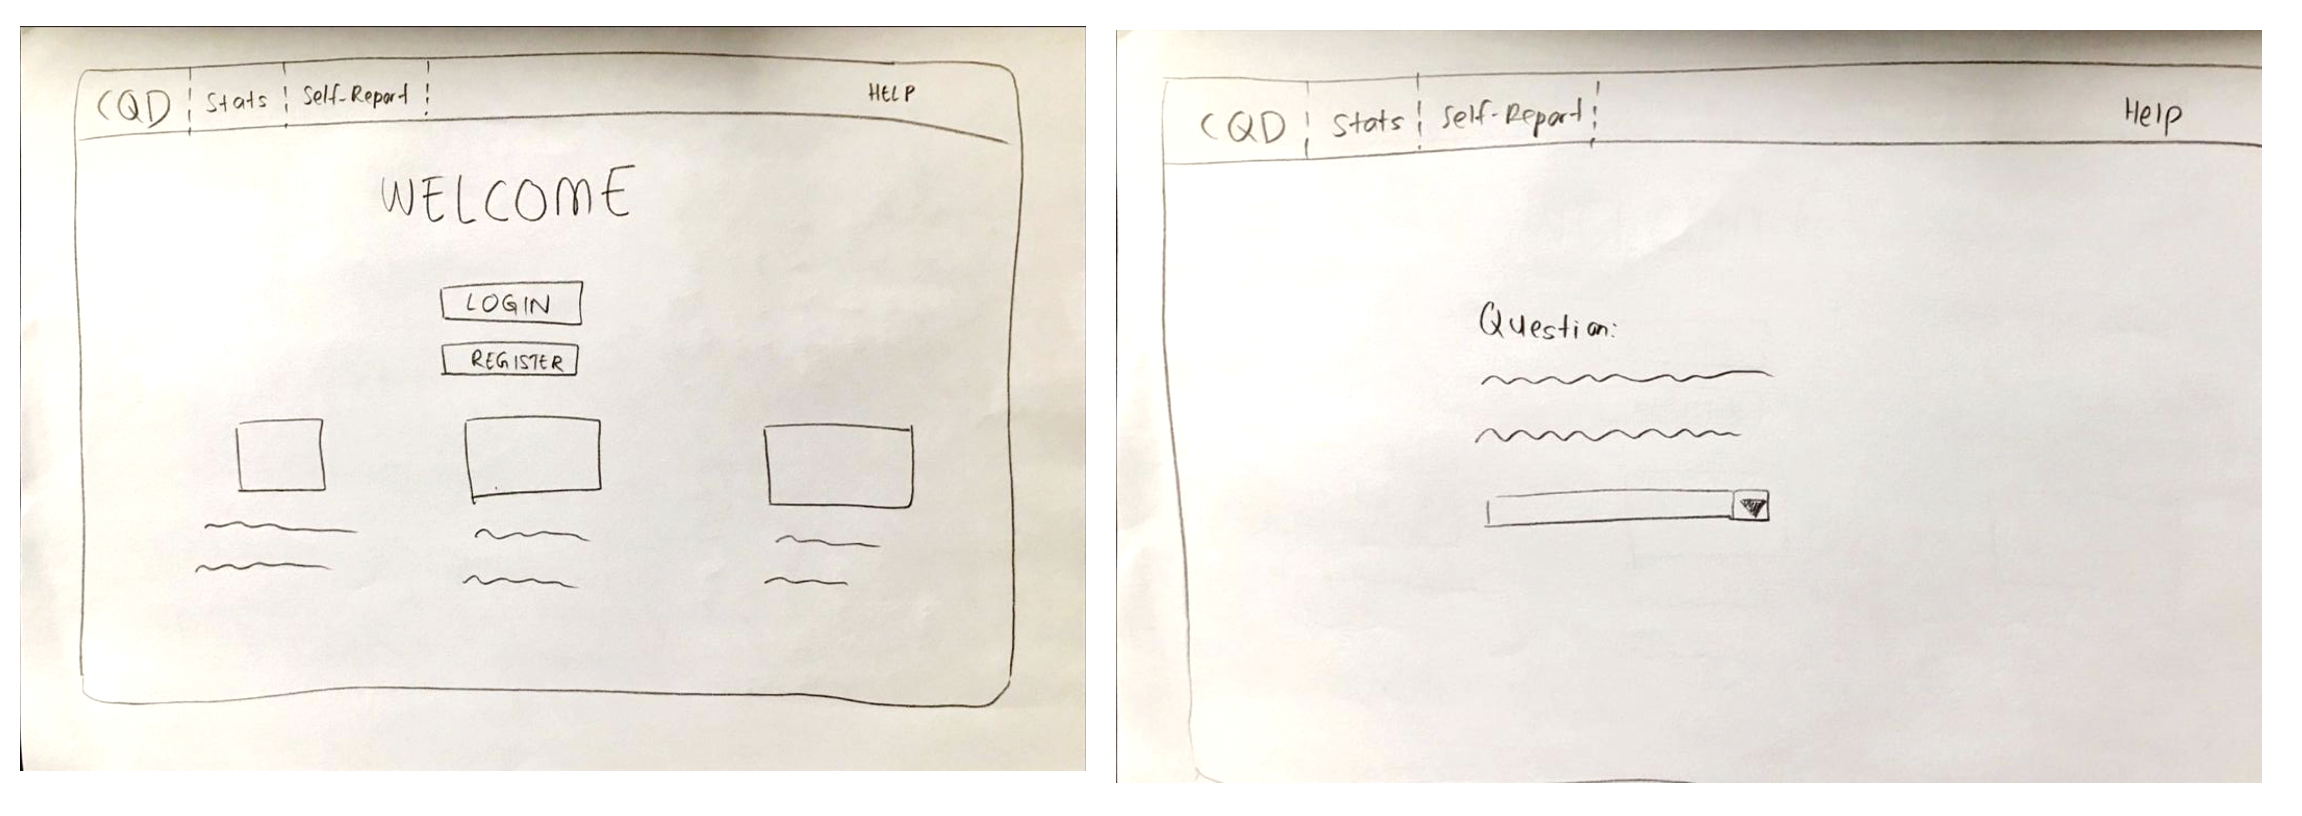 CQD Stats Self-Report HELP
WELCOME
LOGIN
REGISTER
CQD Stats Self-Report Help
Question: